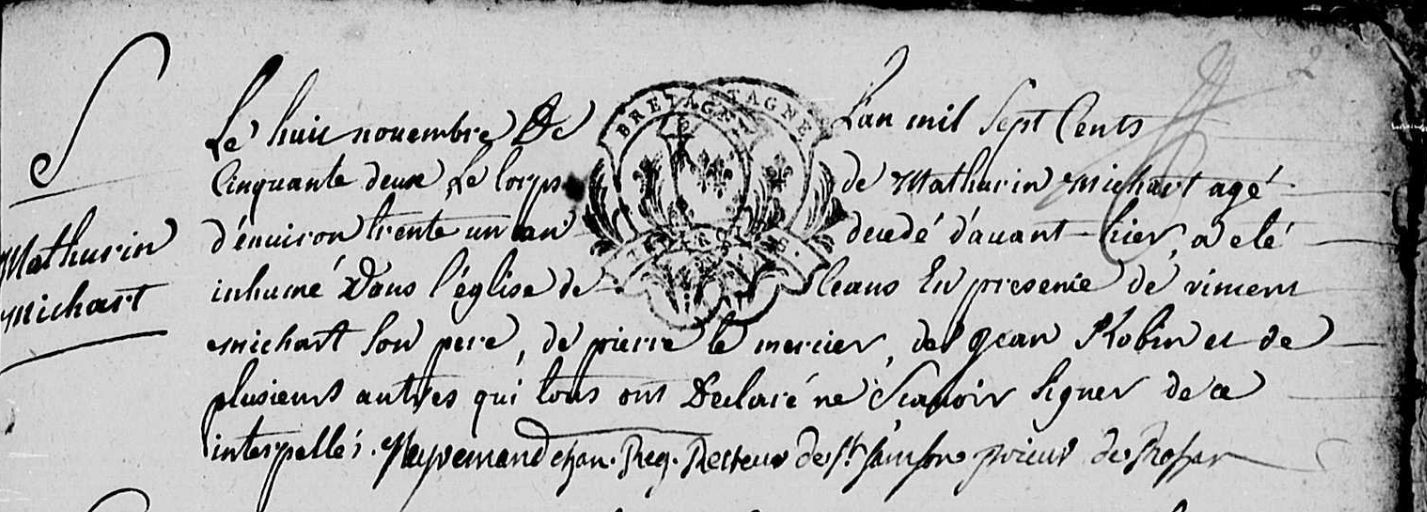 S
Mathurin
Michart
BRETAGNE
TAGNE
Le huit nouembre De L'an mil Sept Cents
Cinquante deux Le Corps de Mathurin Michart agé
d'énuiron trente un an decedé d'auant-hier, a eté
inhumé Dans l'église de En presence de vincent
michart Son pere, de pierre le mercier, de Jean Robin et de
plusieurs autres qui tous ont Declaré ne Scauoir Signer de ce
interpellés. chan. Reg. Recteur de St. Samson prieur de